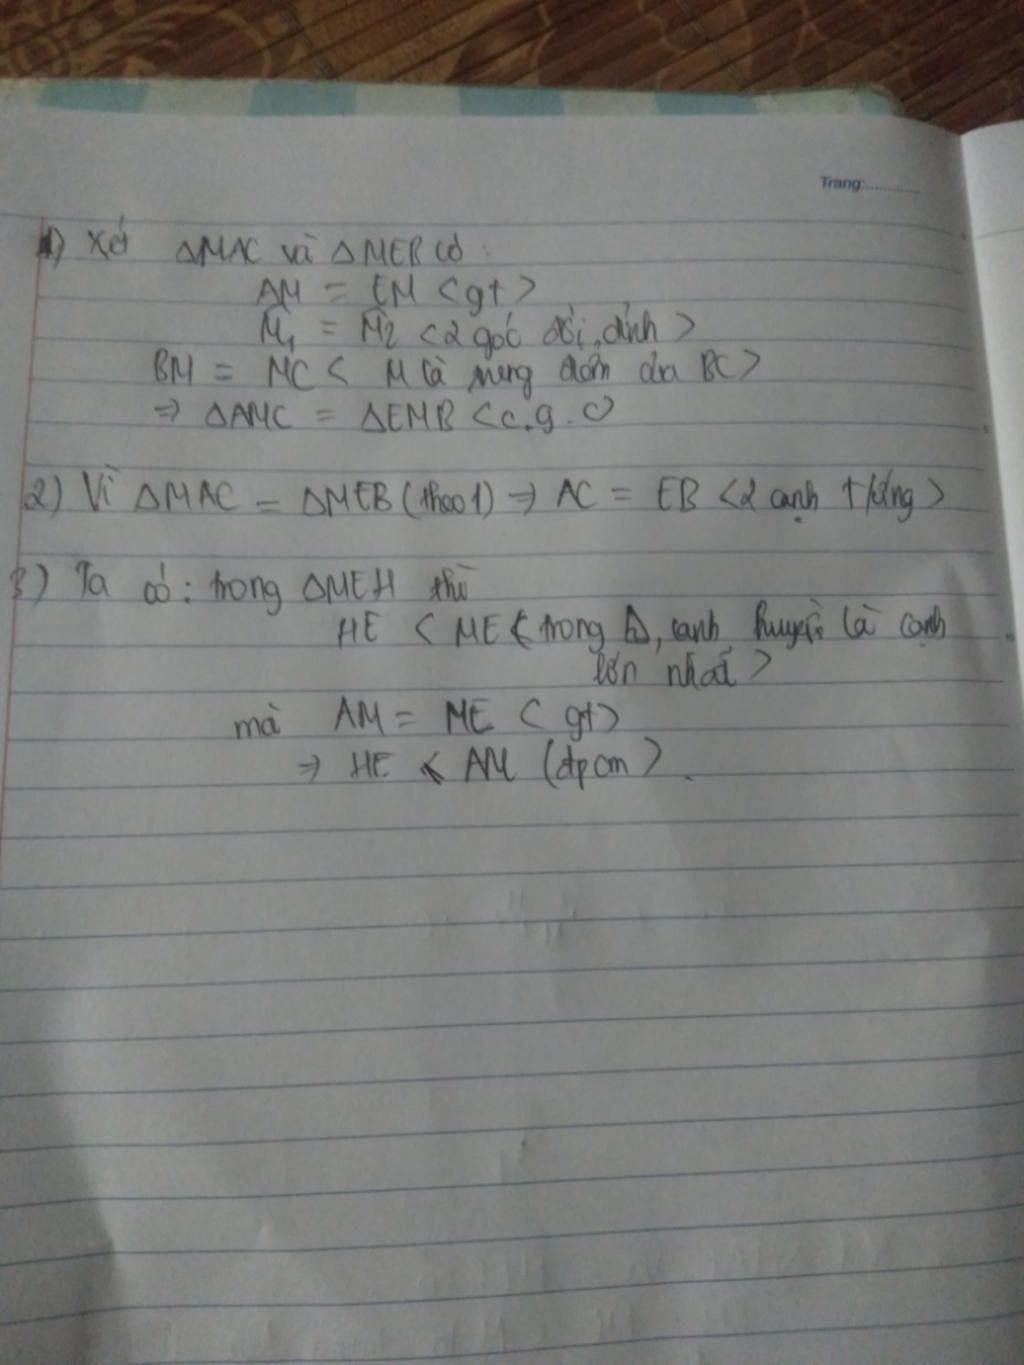 Trang:............
1) Xét ΔMAC và ΔMEB có :
AM = EM <gt>
M̂₁ = M̂₂ <2 góc đối đỉnh>
BM = MC < M là trung điểm của BC>
⇒ ΔAMC = ΔEMB <c.g.c>
2) Vì ΔMAC = ΔMEB (theo 1) ⇒ AC = EB <2 cạnh t/ứng>
3) Ta có : trong ΔMEH thì
HE < ME < trong ⊿, cạnh huyền là cạnh
lớn nhất >
mà AM = ME < gt>
⇒ HE < AM (đpcm).